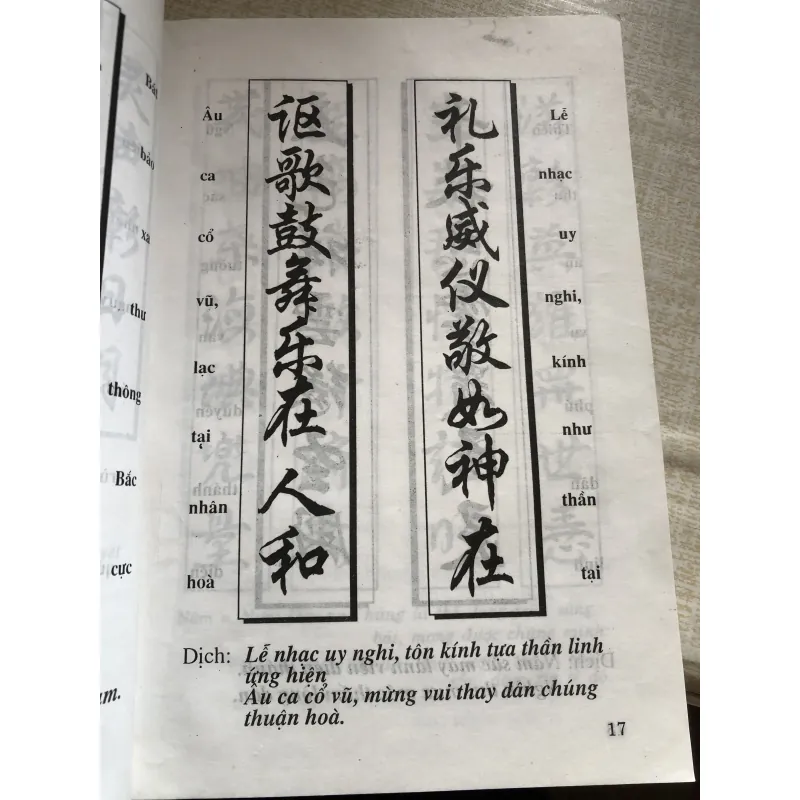 礼乐威仪敬如神在
Lễ
nhạc
uy
nghi,
kính
như
thần
tại
讴歌鼓舞乐在人和
Âu
ca
cổ
vũ,
lạc
tại
nhân
hoà
Dịch: Lễ nhạc uy nghi, tôn kính tưa thần linh
ứng hiện
Âu ca cổ vũ, mừng vui thay dân chúng
thuận hoà.
17
bảo
xa
thư
thông
Bắc
cực